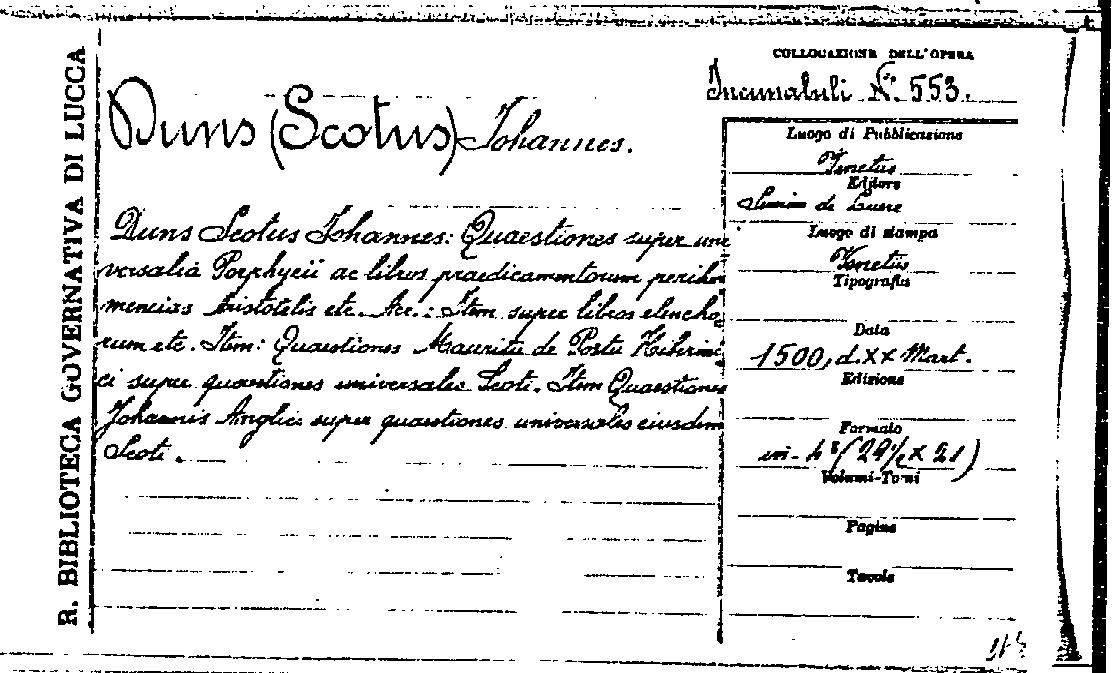 R. BIBLIOTECA GOVERNATIVA DI LUCCA
COLLOCAZIONE DELL'OPERA
Incunabuli N. 553.
Duns (Scotus) Johannes.
Duns Scotus Johannes: Quaestiones super uni
versalia Porphyrii ac libros praedicamentorum periher
meneias Aristotelis etc. Acc.: Item super libros elencho
rum etc. Item: Quaestiones Mauritii de Portu Hiberni
ci super quaestiones universales Scoti. Item Quaestiones
Johannis Anglici super quaestiones universales eiusdem
Scoti.
Luogo di Pubblicazione
Venetiis
Editore
de Luere
Luogo di stampa
Venetiis
Tipografia
Data
1500, d. XX Mart.
Edizione
Formato
in-4° (29½ x 21)
Volumi-Tomi
Pagine
Tavole